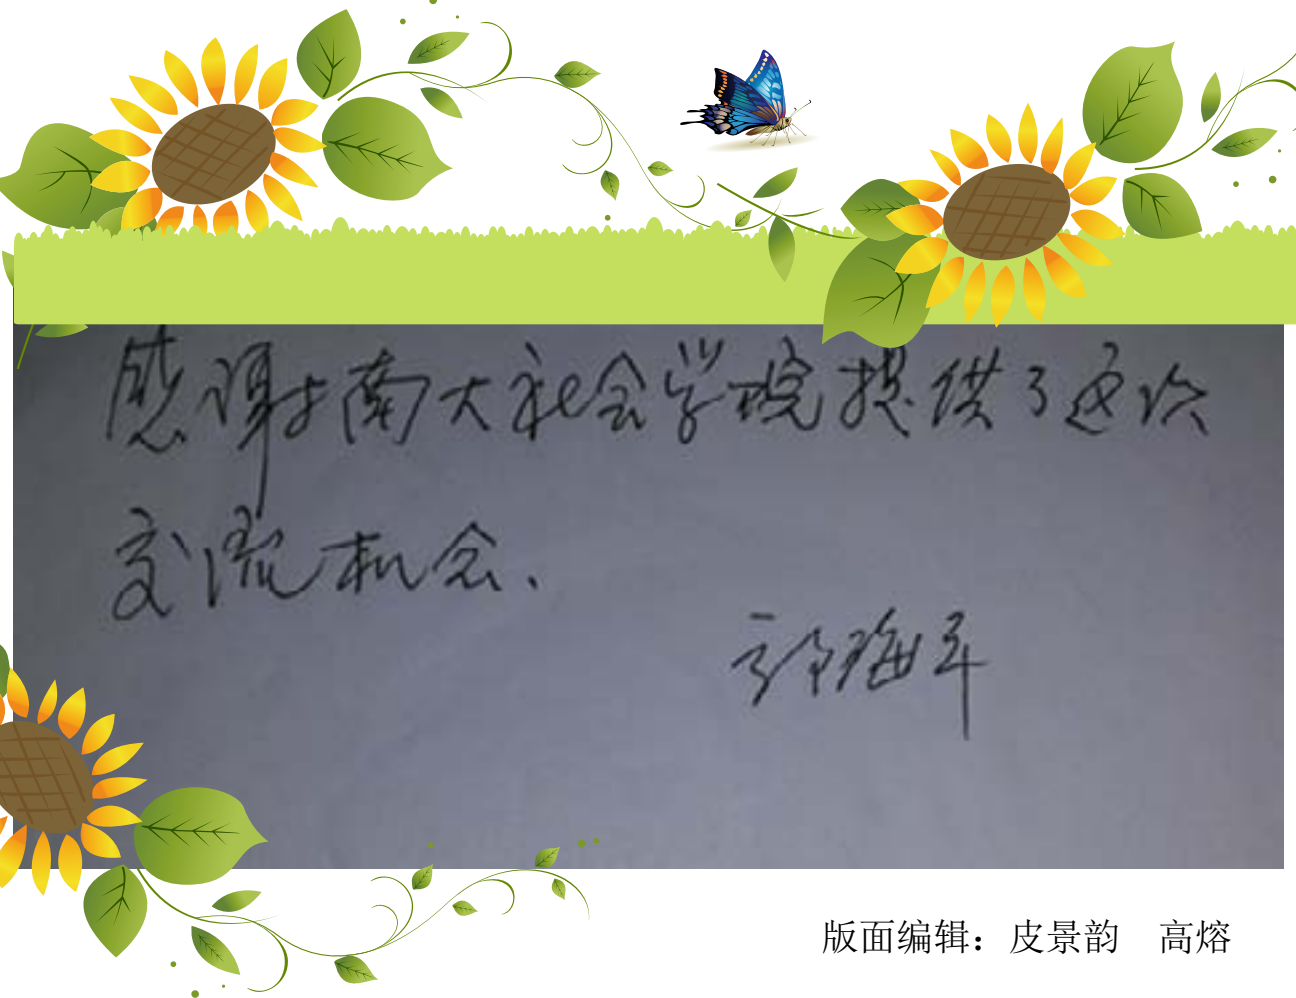 感谢南大社会学院提供了这次
交流机会、
海平
版面编辑：皮景韵　高熔